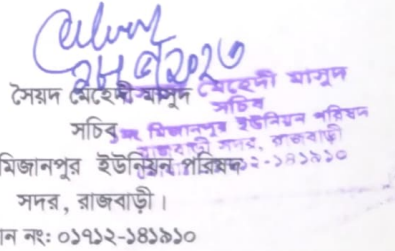 সৈয়দ মেহেদী মাসুদ
সচিব
মিজানপুর ইউনিয়ন পরিষদ
সদর, রাজবাড়ী।
ন নং: ০১৭১২-১৪১৯১০
মেহেদী মাসুদ
সচিব
মিজানপুর ইউনিয়ন পরিষদ
রাজবাড়ী সদর, রাজবাড়ী